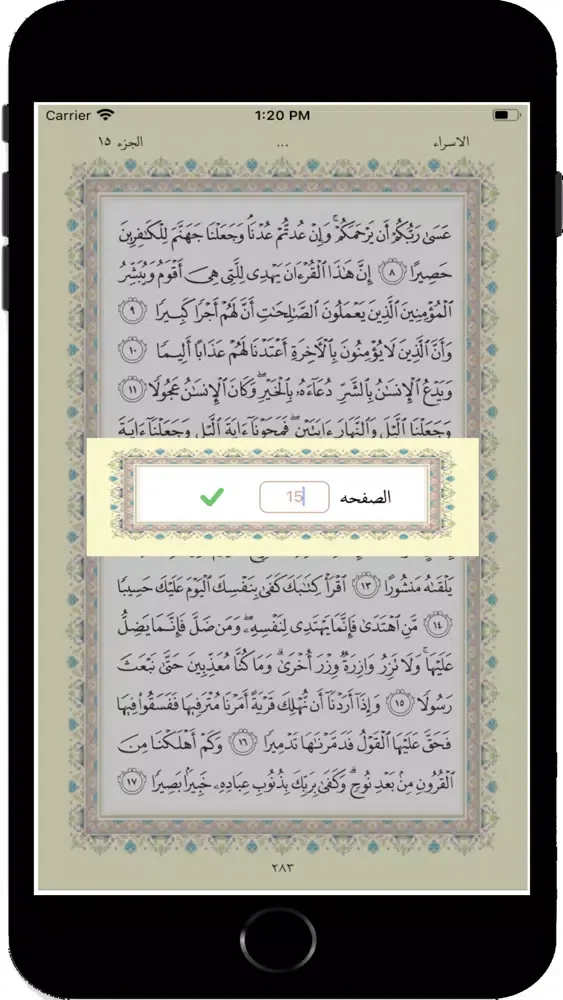 Carrier 1:20 PM
الاسراء ... الجزء ١٥
عَسَىٰ رَبُّكُمْ أَن يَرْحَمَكُمْ ۚ وَإِنْ عُدتُّمْ عُدْنَا ۘ وَجَعَلْنَا جَهَنَّمَ لِلْكَٰفِرِينَ
حَصِيرًا ٨ إِنَّ هَٰذَا ٱلْقُرْءَانَ يَهْدِى لِلَّتِى هِىَ أَقْوَمُ وَيُبَشِّرُ
ٱلْمُؤْمِنِينَ ٱلَّذِينَ يَعْمَلُونَ ٱلصَّٰلِحَٰتِ أَنَّ لَهُمْ أَجْرًا كَبِيرًا ٩
وَأَنَّ ٱلَّذِينَ لَا يُؤْمِنُونَ بِٱلْءَاخِرَةِ أَعْتَدْنَا لَهُمْ عَذَابًا أَلِيمًا ١٠
وَيَدْعُ ٱلْإِنسَٰنُ بِٱلشَّرِّ دُعَآءَهُۥ بِٱلْخَيْرِ ۖ وَكَانَ ٱلْإِنسَٰنُ عَجُولًا ١١
وَجَعَلْنَا ٱلَّيْلَ وَٱلنَّهَارَ ءَايَتَيْنِ ۖ فَمَحَوْنَآ ءَايَةَ ٱلَّيْلِ وَجَعَلْنَآ ءَايَةَ
الصفحه 15
يَلْقَىٰهُ مَنشُورًا ١٣ ٱقْرَأْ كِتَٰبَكَ كَفَىٰ بِنَفْسِكَ ٱلْيَوْمَ عَلَيْكَ حَسِيبًا
١٤ مَّنِ ٱهْتَدَىٰ فَإِنَّمَا يَهْتَدِى لِنَفْسِهِۦ ۖ وَمَن ضَلَّ فَإِنَّمَا يَضِلُّ
عَلَيْهَا ۚ وَلَا تَزِرُ وَازِرَةٌ وِزْرَ أُخْرَىٰ ۗ وَمَا كُنَّا مُعَذِّبِينَ حَتَّىٰ نَبْعَثَ
رَسُولًا ١٥ وَإِذَآ أَرَدْنَآ أَن نُّهْلِكَ قَرْيَةً أَمَرْنَا مُتْرَفِيهَا فَفَسَقُوا۟ فِيهَا
فَحَقَّ عَلَيْهَا ٱلْقَوْلُ فَدَمَّرْنَٰهَا تَدْمِيرًا ١٦ وَكَمْ أَهْلَكْنَا مِنَ
ٱلْقُرُونِ مِنۢ بَعْدِ نُوحٍ ۗ وَكَفَىٰ بِرَبِّكَ بِذُنُوبِ عِبَادِهِۦ خَبِيرًۢا بَصِيرًا ١٧
٢٨٣